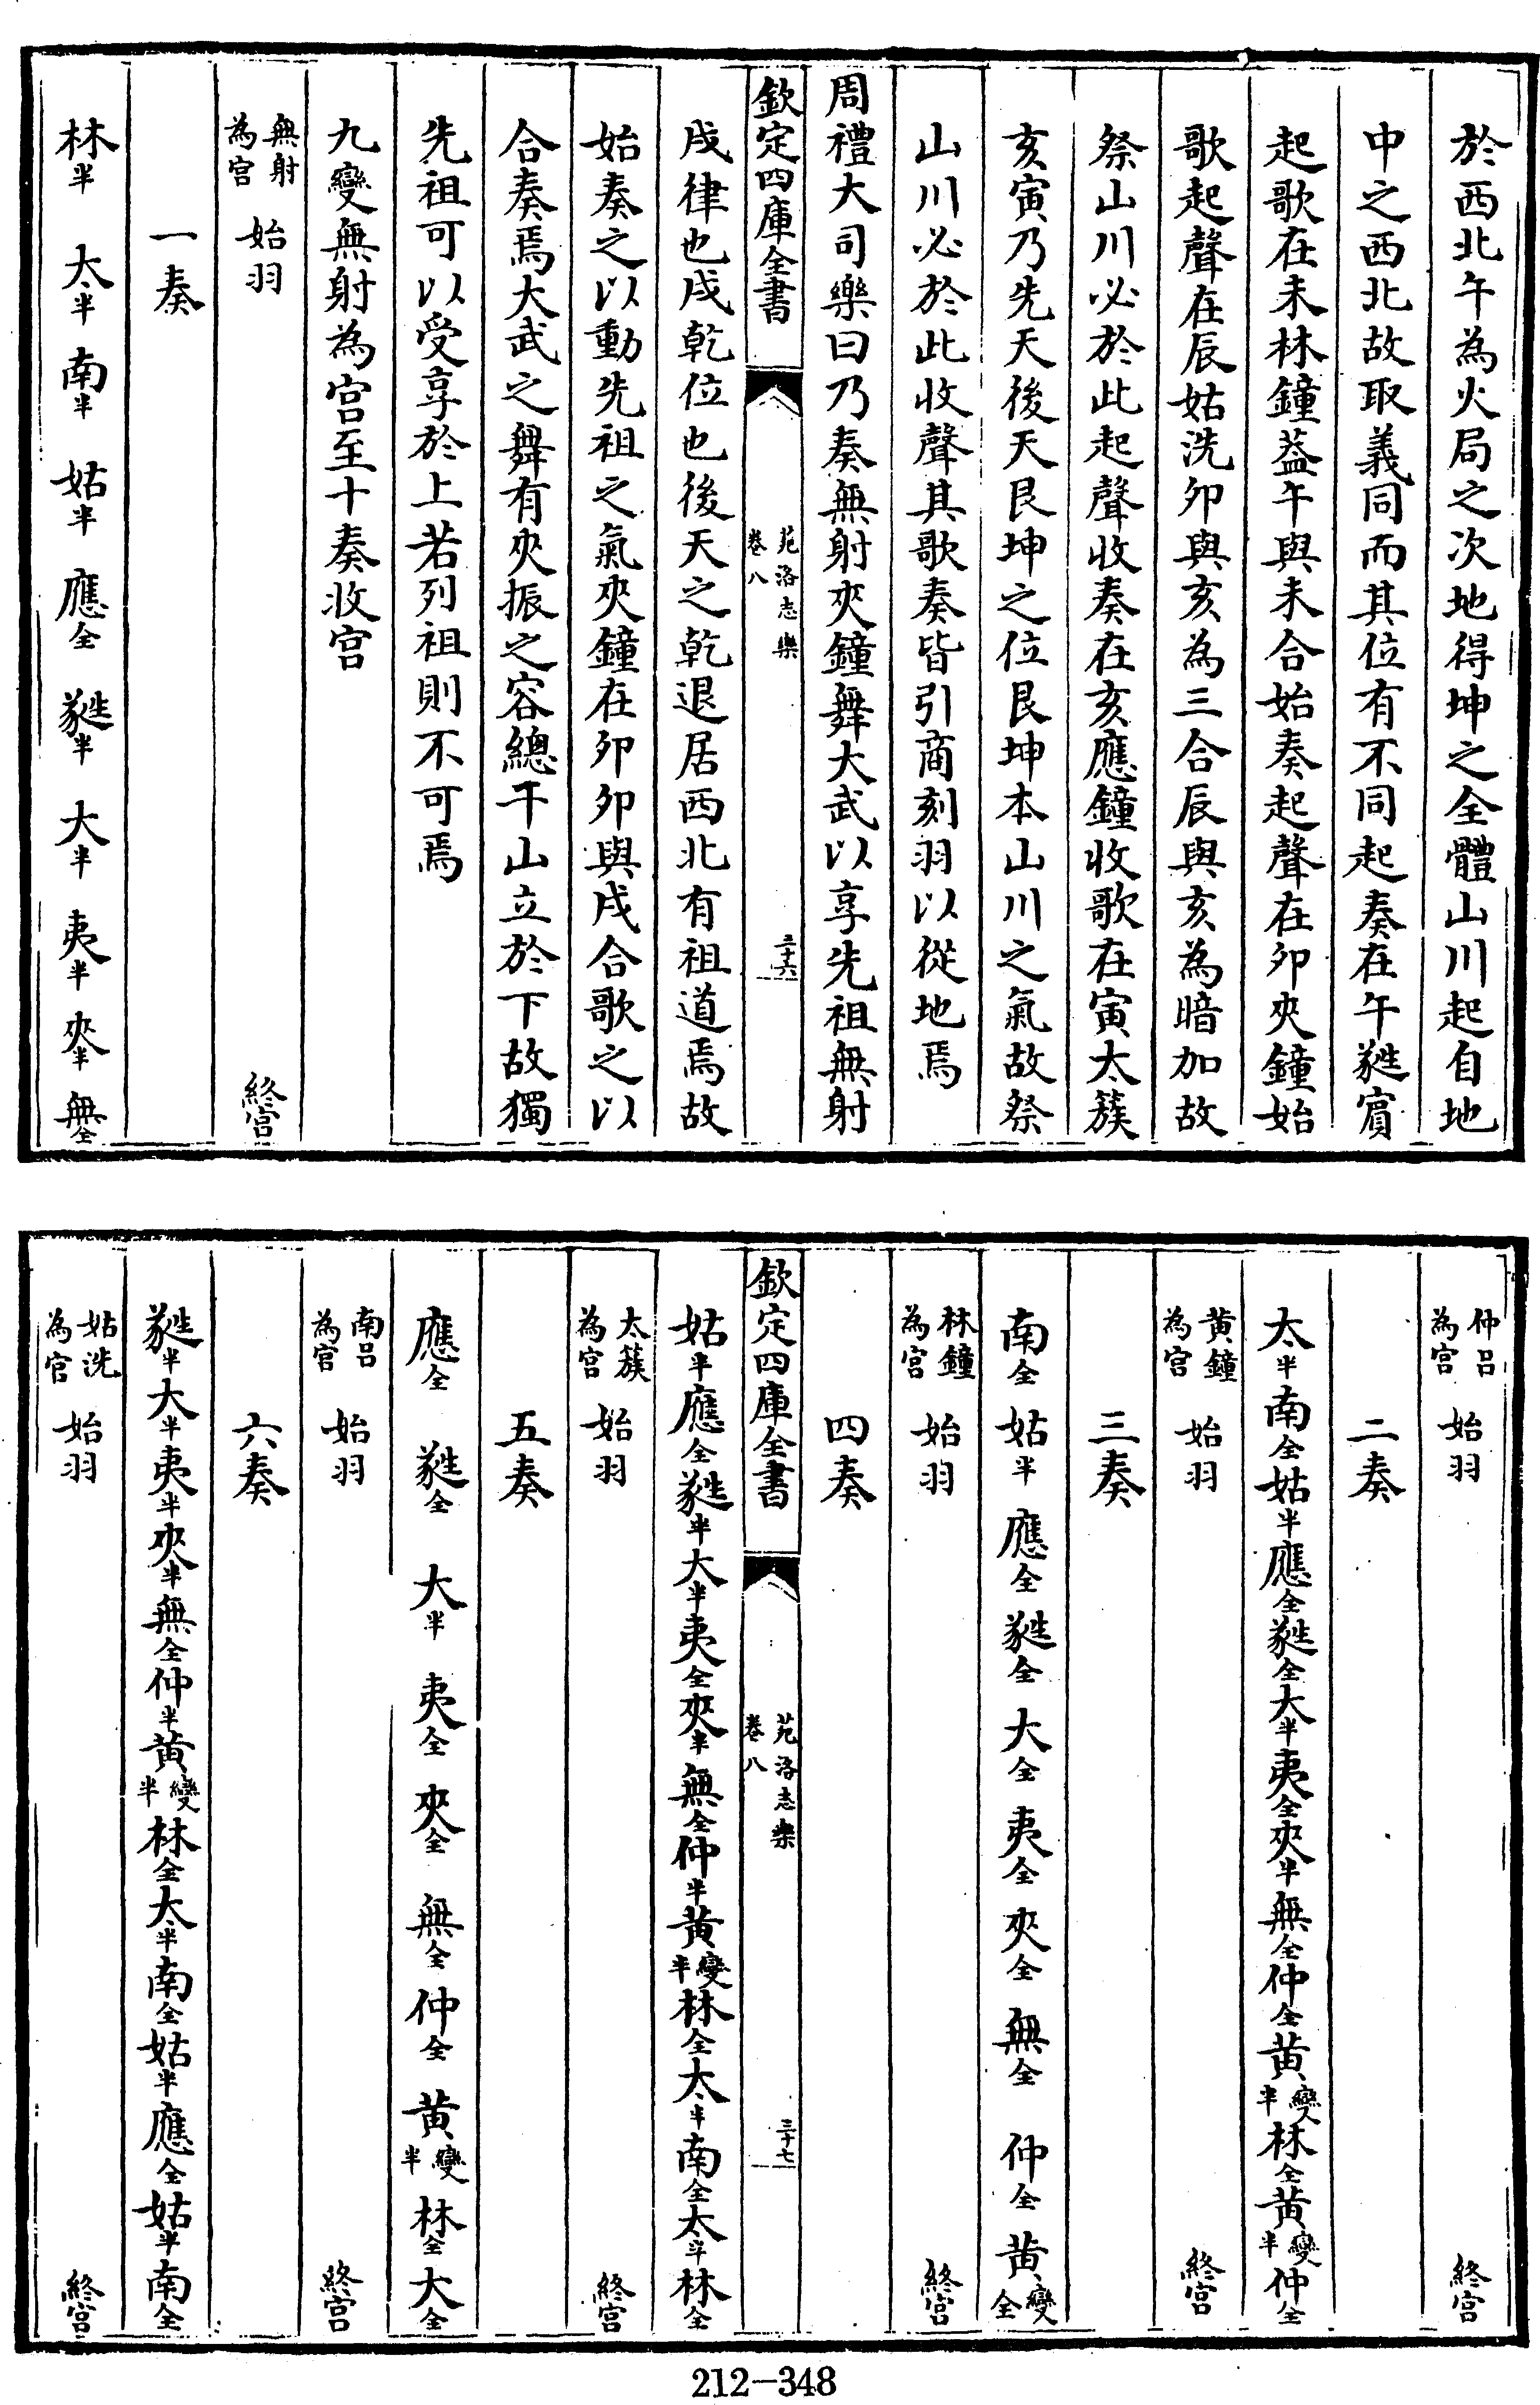 於西北午為火局之次地得坤之全體山川起自地
中之西北故取義同而其位有不同起奏在午蕤賔
起歌在未林鐘葢午與未合始奏起聲在卯夾鐘始
歌起聲在辰姑洗卯與亥為三合辰與亥為暗加故
祭山川必於此起聲收奏在亥應鐘收歌在寅太簇
亥寅乃先天後天艮坤之位艮坤本山川之氣故祭
山川必於此收聲其歌奏皆引商刻羽以從地焉
周禮大司樂曰乃奏無射夾鐘舞大武以享先祖無射
欽定四庫全書
苑洛志樂
卷八
三十六
戌律也戌乾位也後天之乾退居西北有祖道焉故
始奏之以動先祖之氣夾鐘在卯卯與戌合歌之以
合奏焉大武之舞有夾振之容總干山立於下故獨
先祖可以受享於上若列祖則不可焉
九變無射為宫至十奏收宫
無射為宫 始羽 終宫
一奏
林半 太半 南半 姑半 應全 蕤半 大半 夷半 夾半 無全
仲呂為宫 始羽 終宫
二奏
太半南全姑半應全蕤全大半夷全夾半無全仲全黄變半林全黄變半仲全
黄鐘為宫 始羽 終宫
三奏
南全 姑半 應全 蕤全 大全 夷全 夾全 無全 仲全 黄變全
林鐘為宫 始羽 終宫
四奏
欽定四庫全書
苑洛志樂
卷八
三十七
姑半應全蕤半大半夷全夾半無全仲半黄變半林全太半南全太半林全
太簇為宫 始羽 終宫
五奏
應全 蕤全 大半 夷全 夾全 無全 仲全 黄變半 林全 大全
南呂為宫 始羽 終宫
六奏
蕤半大半夷半夾半無全仲半黄變半林全太半南全姑半應全姑半南全
姑洗為宫 始羽 終宫
212-348